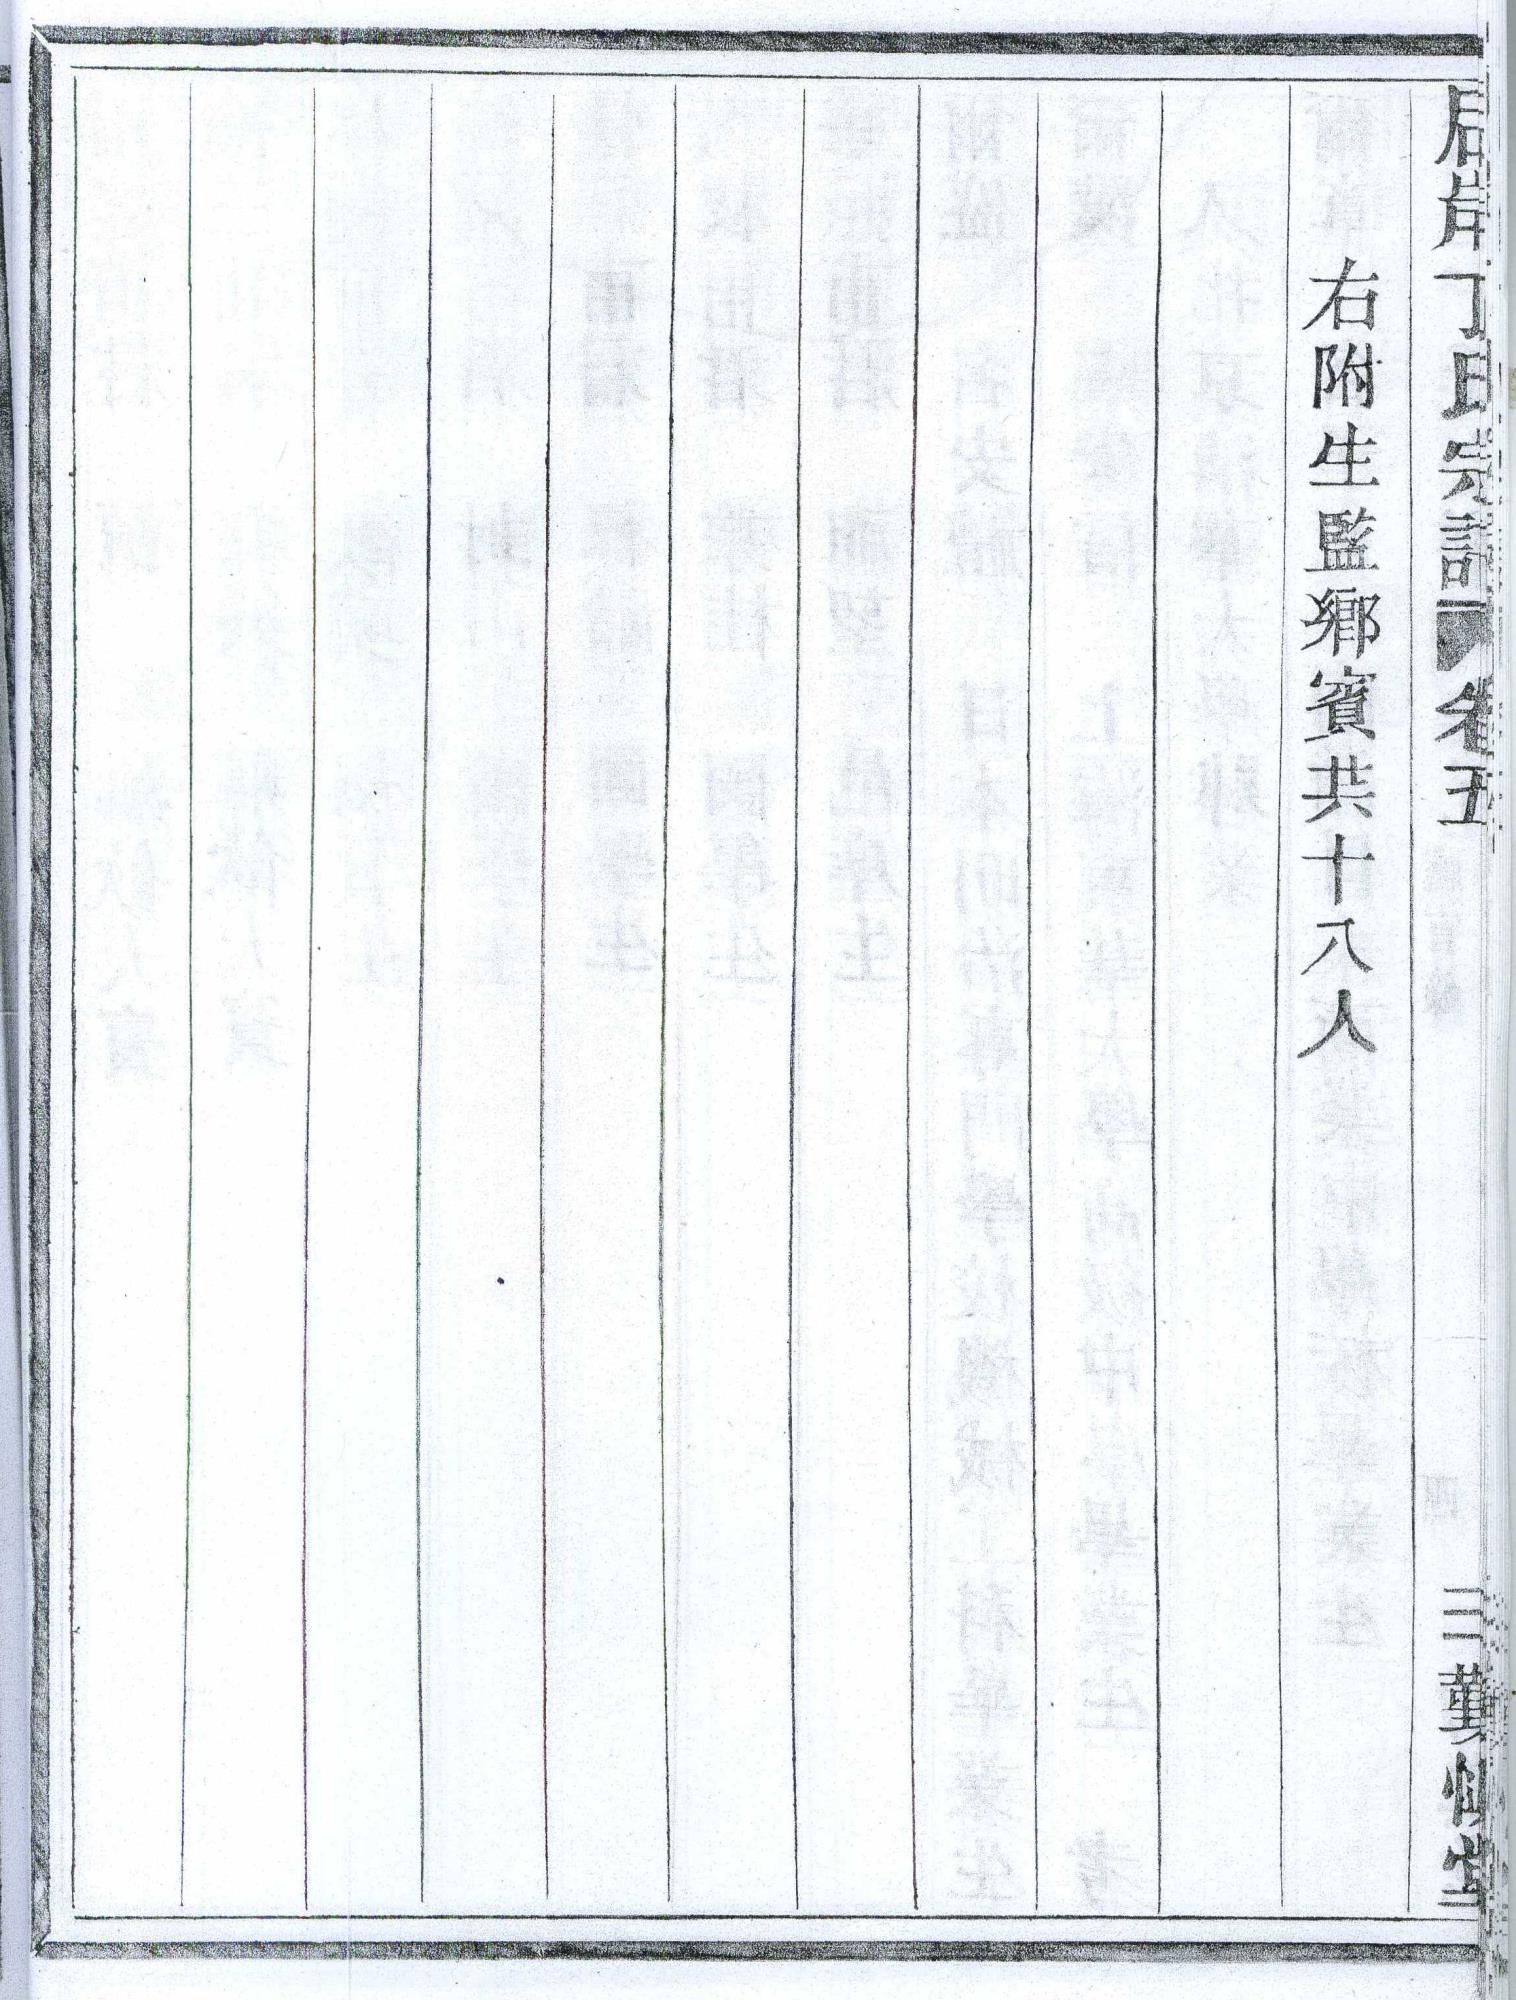 丁氏宗譜 卷五 三 勤慎堂
右附生監鄉賓共十八人